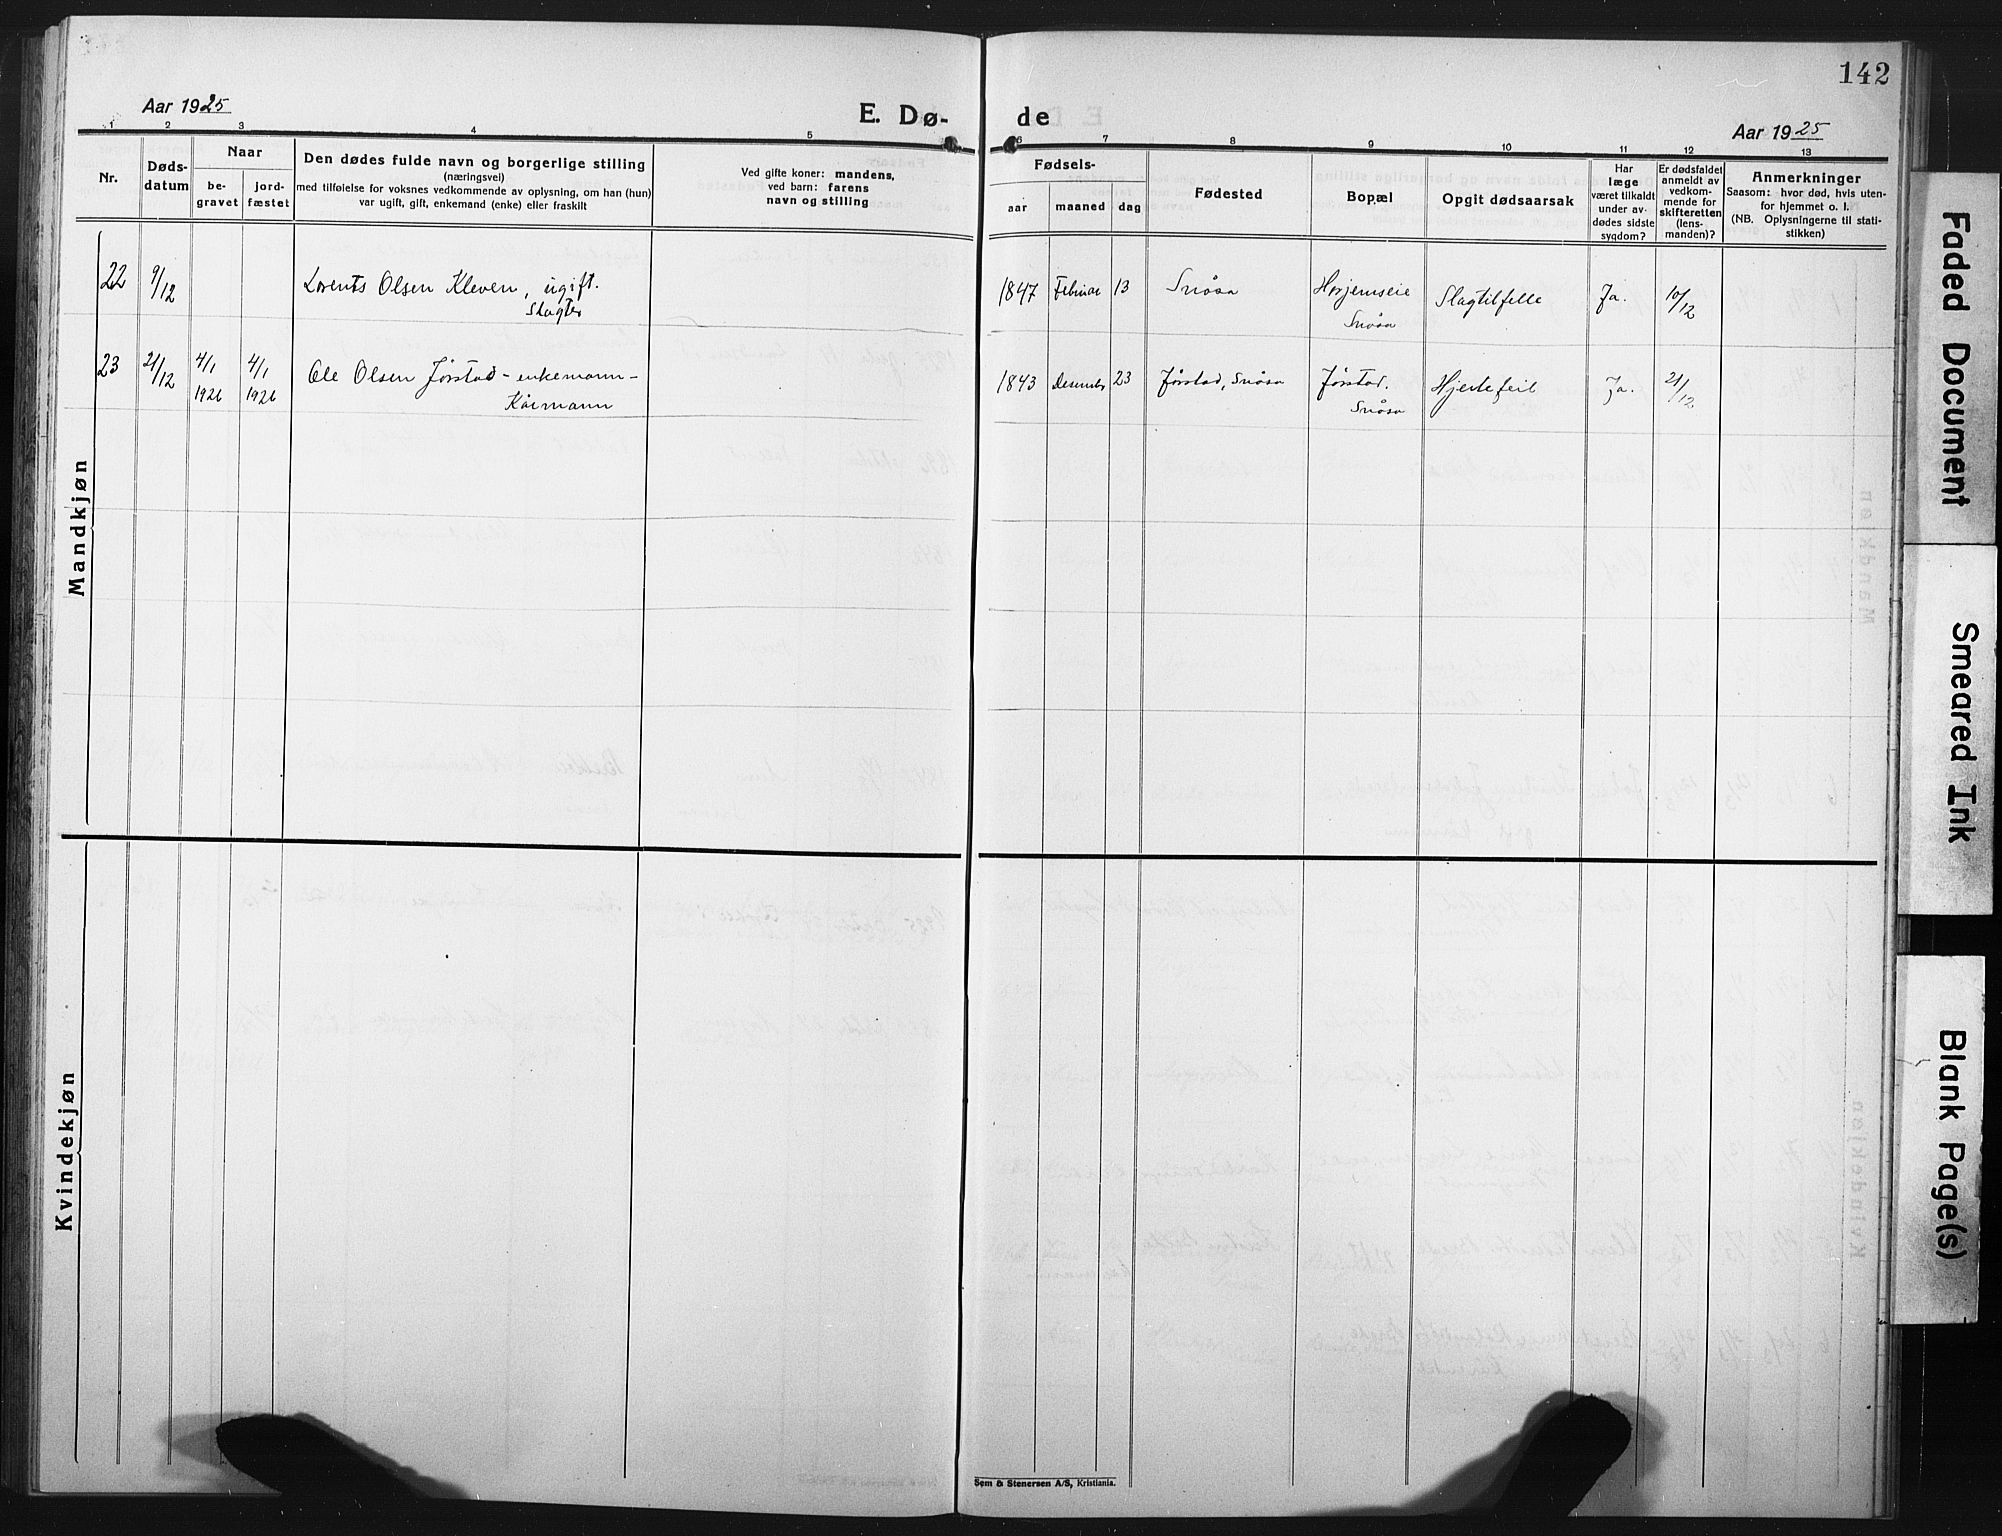 142
Aar 1925
E. Dø-
de
Aar 1925
1 2 3 4 5
6 7 8 9 10 11 12 13
Nr.
Døds-
datum
Naar
be-
gravet
jord-
fæstet
Den dødes fulde navn og borgerlige stilling
(næringsvei)
med tilføielse for voksnes vedkommende av oplysning, om han (hun)
var ugift, gift, enkemand (enke) eller fraskilt
Ved gifte koner: mandens,
ved barn: farens
navn og stilling
Fødsels-
aar
maaned
dag
Fødested
Bopæl
Opgit dødsaarsak
Har
læge
været tilkaldt
under av-
dødes sidste
sygdom?
Er dødsfaldet
anmeldt av
vedkom-
mende for
skifteretten
(lens-
manden)?
Anmerkninger
Saasom: hvor død, hvis uten-
for hjemmet o. l.
(NB. Oplysningerne til stati-
stikken)
Mandkjøn
22 9/12 Lorents Olsen Kleven, ugift. 1847 Februar 13 Snåsa Horjemseie Slagtilfelle Ja. 10/12
Slagter Snåsa
23 21/12 4/1 4/1 Ole Olsen Jørstad - enkemann - 1843 Desember 23 Jørstad, Snåsa Jørstad. Hjertefeil Ja. 21/12
1926 1926 Kårmann Snåsa
Kvindekjøn
Sem & Stenersen A/S, Kristiania.
Faded Document
Smeared Ink
Blank Page(s)